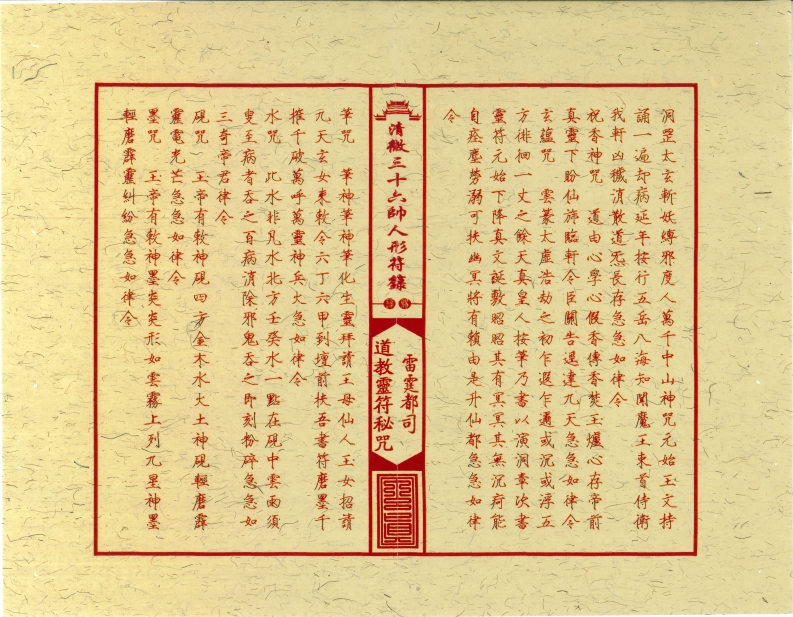 洞罡太玄斬妖縛邪度人萬千中山神咒元始玉文持
誦一遍却病延年按行五岳八海知聞魔王束首侍衛
我軒凶穢消散道炁長存急急如律令
祝香神咒　道由心學心假香傳香焚玉爐心存帝前
真靈下盼仙旆臨軒令臣關告逕達九天急急如律令
玄蘊咒　雲篆太虛浩劫之初乍遐乍邇或沉或浮五
方徘徊一丈之餘天真皇人按筆乃書以演洞章次書
靈符元始下降真文誕敷昭昭其有冥冥其無沉疴能
自痊塵勞溺可扶幽冥將有賴由是升仙都急急如律
令
清微三十六帥人形符籙
雷霆都司
道教靈符秘咒
筆咒　筆神筆神筆化生靈拜請王母仙人玉女招請
九天玄女来敕令六丁六甲到壇前扶吾書符磨墨千
摧千破萬呼萬靈神兵火急如律令
水咒　此水非凡水北方壬癸水一點在硯中雲雨須
臾至病者吞之百病消除邪鬼吞之即刻粉碎急急如
三奇帝君律令
硯咒　玉帝有敕神硯四方金木水火土神硯輕磨霹
靂電光芒急急如律令
墨咒　玉帝有敕神墨炎炎形如雲霧上列九星神墨
輕磨霹靂糾紛急急如律令